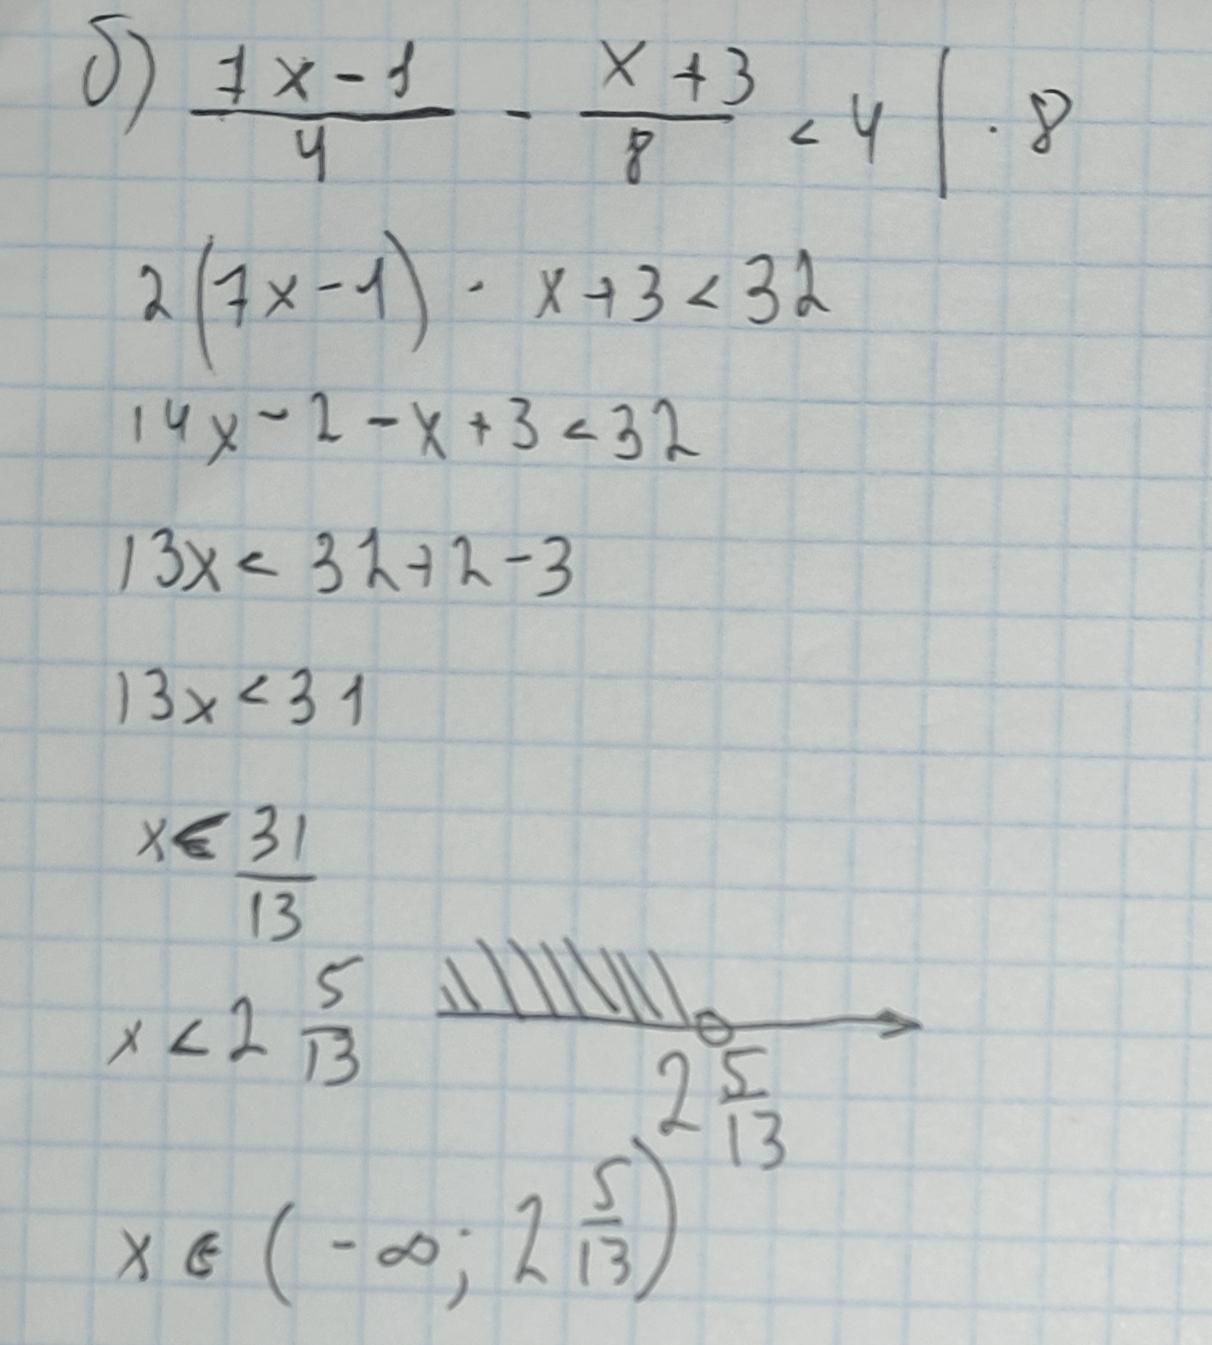 б) (7x-1)/4 - (x+3)/8 < 4 | · 8
2(7x-1) - x+3<32
14x-2-x+3<32
13x< 32+2-3
13x<31
x< 31/13
x<2 5/13
2 5/13
x∈(-∞; 2 5/13)